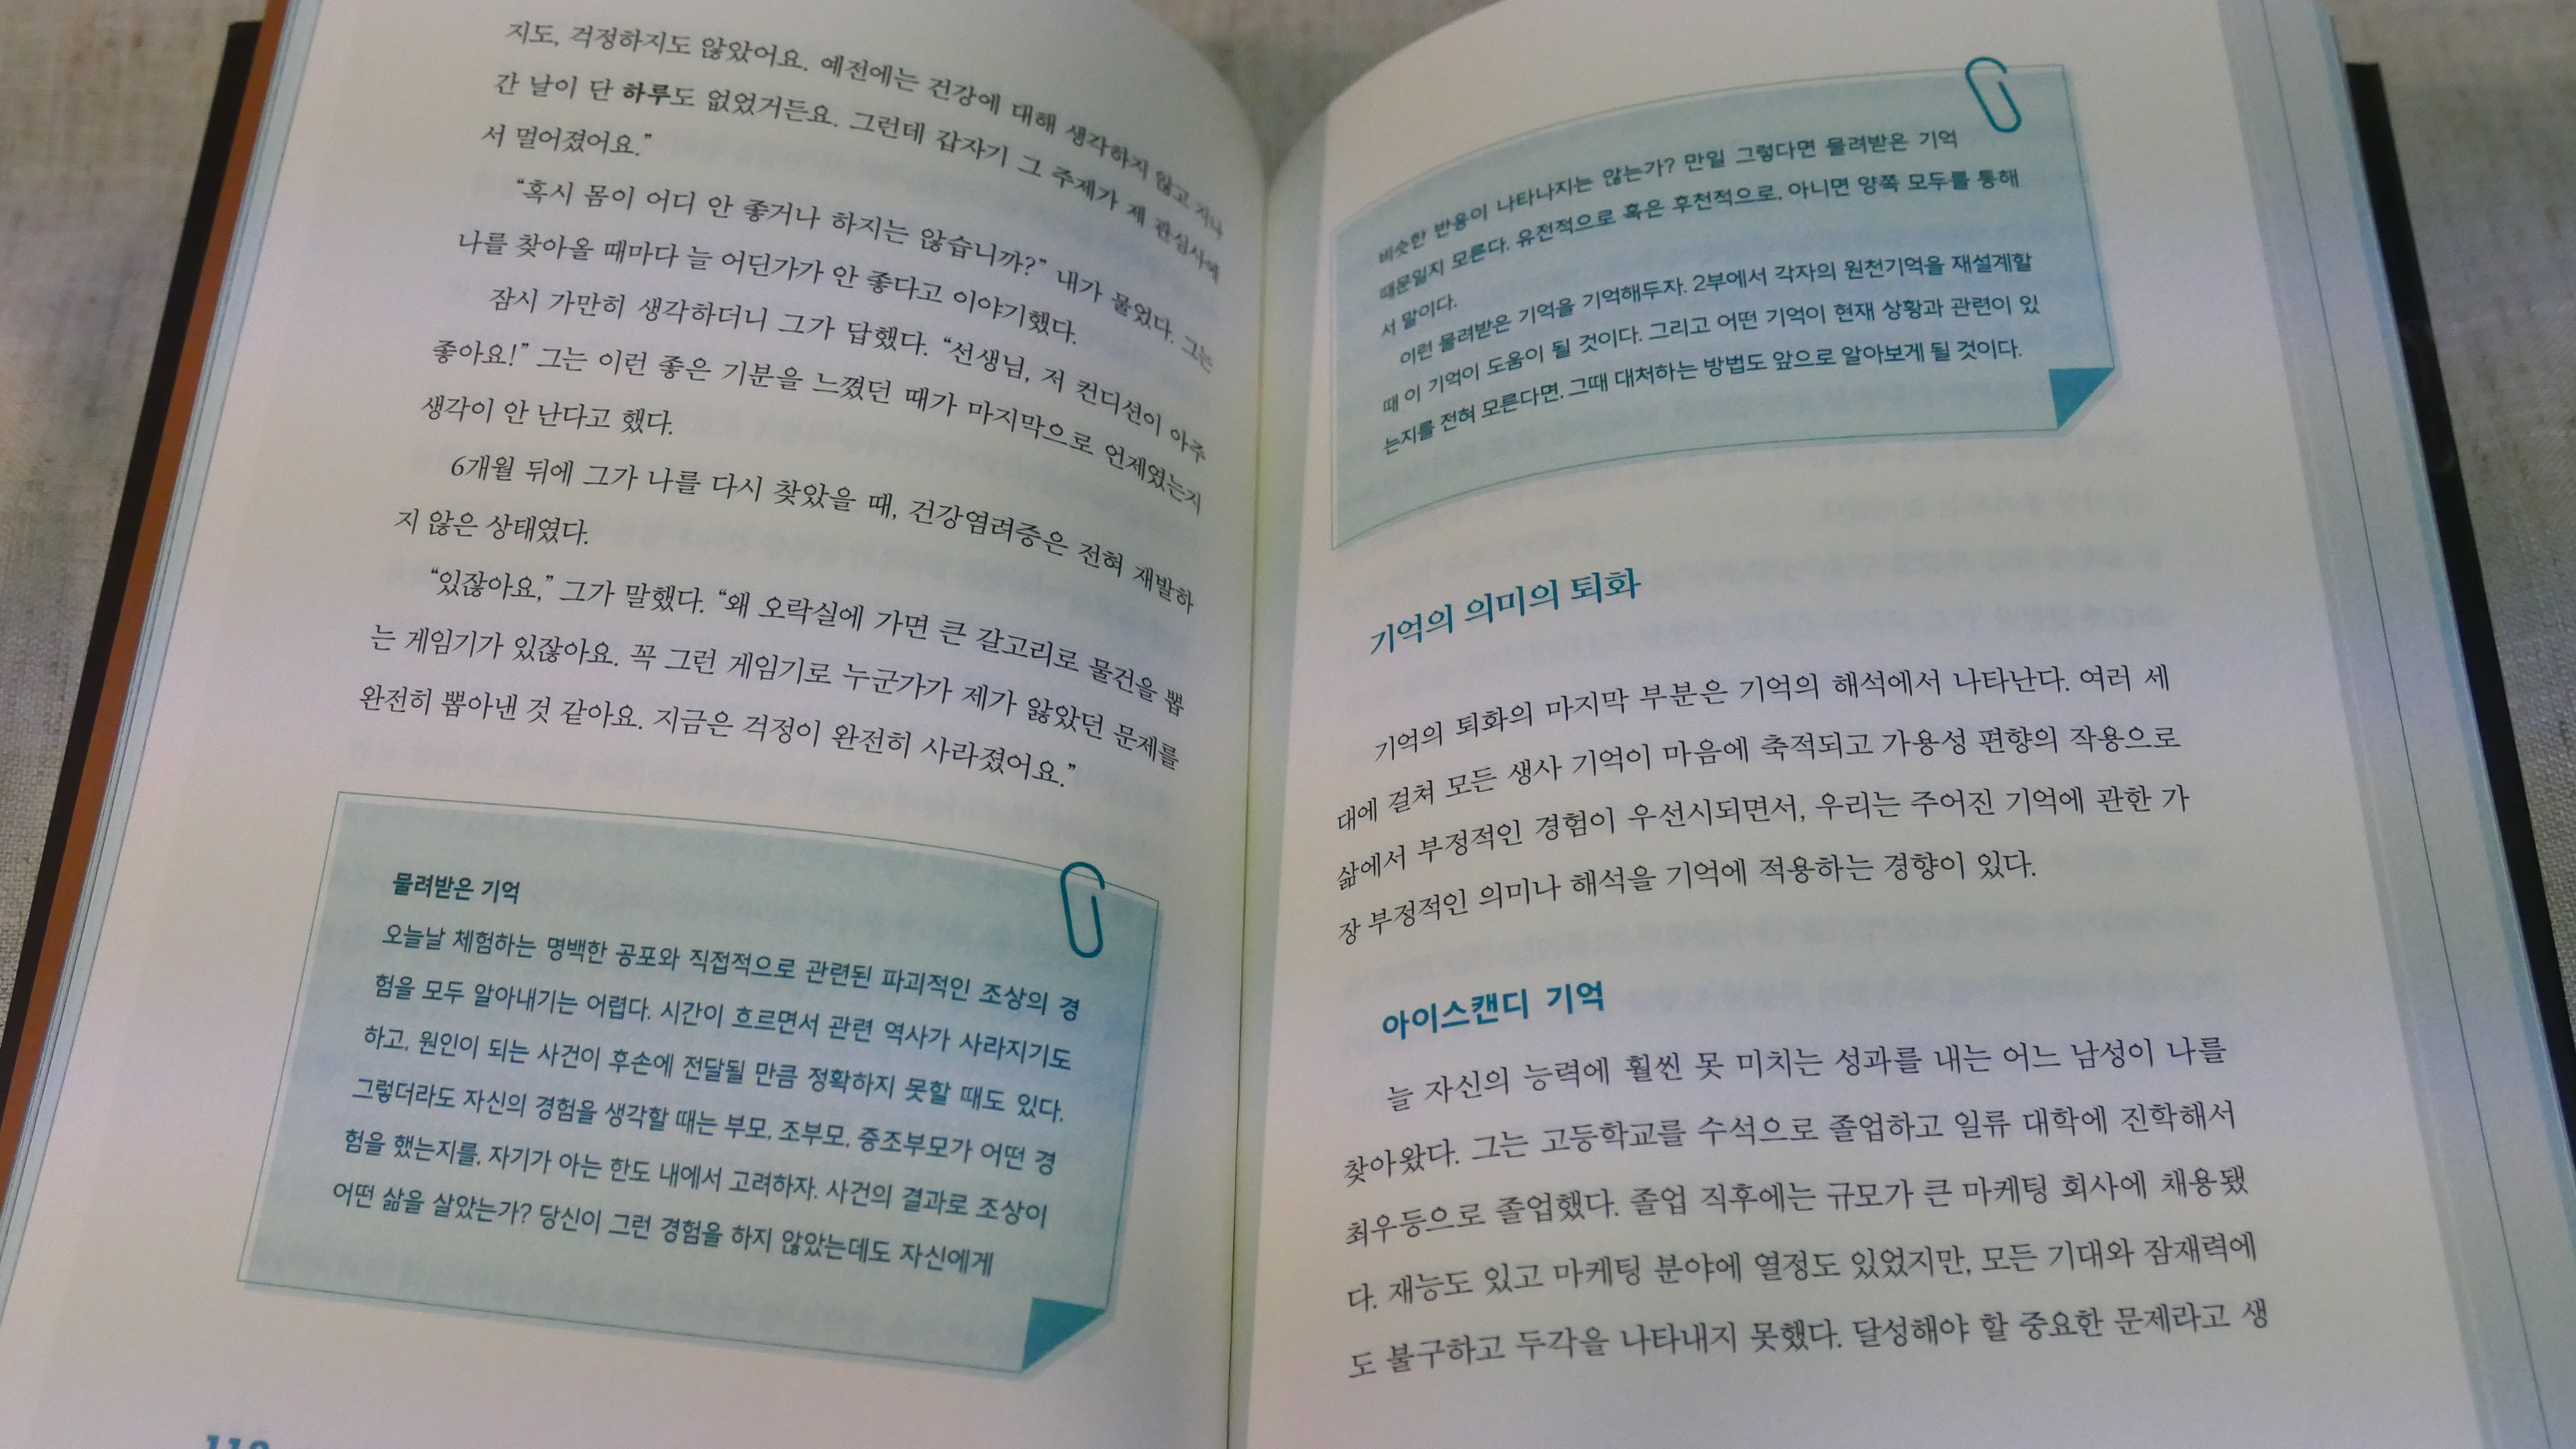 지도, 걱정하지도 않았어요. 예전에는 건강에 대해 생각하지 않고 지나
간 날이 단 하루도 없었거든요. 그런데 갑자기 그 주제가 제 관심사에
서 멀어졌어요.”
“혹시 몸이 어디 안 좋거나 하지는 않습니까?” 내가 물었다. 그는
나를 찾아올 때마다 늘 어딘가가 안 좋다고 이야기했다.
잠시 가만히 생각하더니 그가 답했다. “선생님, 저 컨디션이 아주
좋아요!” 그는 이런 좋은 기분을 느꼈던 때가 마지막으로 언제였는지
생각이 안 난다고 했다.
6개월 뒤에 그가 나를 다시 찾았을 때, 건강염려증은 전혀 재발하
지 않은 상태였다.
“있잖아요,” 그가 말했다. “왜 오락실에 가면 큰 갈고리로 물건을 뽑
는 게임기가 있잖아요. 꼭 그런 게임기로 누군가가 제가 앓았던 문제를
완전히 뽑아낸 것 같아요. 지금은 걱정이 완전히 사라졌어요.”
물려받은 기억
오늘날 체험하는 명백한 공포와 직접적으로 관련된 파괴적인 조상의 경
험을 모두 알아내기는 어렵다. 시간이 흐르면서 관련 역사가 사라지기도
하고, 원인이 되는 사건이 후손에 전달될 만큼 정확하지 못할 때도 있다.
그렇더라도 자신의 경험을 생각할 때는 부모, 조부모, 증조부모가 어떤 경
험을 했는지를, 자기가 아는 한도 내에서 고려하자. 사건의 결과로 조상이
어떤 삶을 살았는가? 당신이 그런 경험을 하지 않았는데도 자신에게
비슷한 반응이 나타나지는 않는가? 만일 그렇다면 물려받은 기억
때문일지 모른다. 유전적으로 혹은 후천적으로, 아니면 양쪽 모두를 통해
서 말이다.
이런 물려받은 기억을 기억해두자. 2부에서 각자의 원천기억을 재설계할
때 이 기억이 도움이 될 것이다. 그리고 어떤 기억이 현재 상황과 관련이 있
는지를 전혀 모른다면, 그때 대처하는 방법도 앞으로 알아보게 될 것이다.
기억의 의미의 퇴화
기억의 퇴화의 마지막 부분은 기억의 해석에서 나타난다. 여러 세
대에 걸쳐 모든 생사 기억이 마음에 축적되고 가용성 편향의 작용으로
삶에서 부정적인 경험이 우선시되면서, 우리는 주어진 기억에 관한 가
장 부정적인 의미나 해석을 기억에 적용하는 경향이 있다.
아이스캔디 기억
늘 자신의 능력에 훨씬 못 미치는 성과를 내는 어느 남성이 나를
찾아왔다. 그는 고등학교를 수석으로 졸업하고 일류 대학에 진학해서
최우등으로 졸업했다. 졸업 직후에는 규모가 큰 마케팅 회사에 채용됐
다. 재능도 있고 마케팅 분야에 열정도 있었지만, 모든 기대와 잠재력에
도 불구하고 두각을 나타내지 못했다. 달성해야 할 중요한 문제라고 생